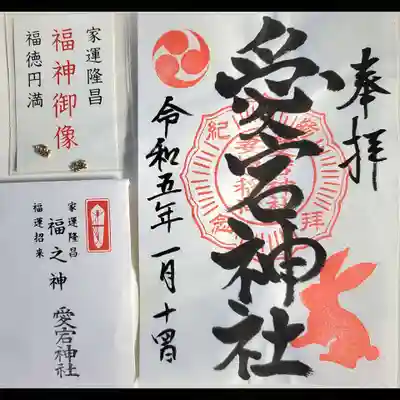 奉拝
愛宕神社
令和五年一月十四日
参拝
紀念
家運隆昌
福神御像
福徳円満
家運隆昌
福之神
福運招来
愛宕神社